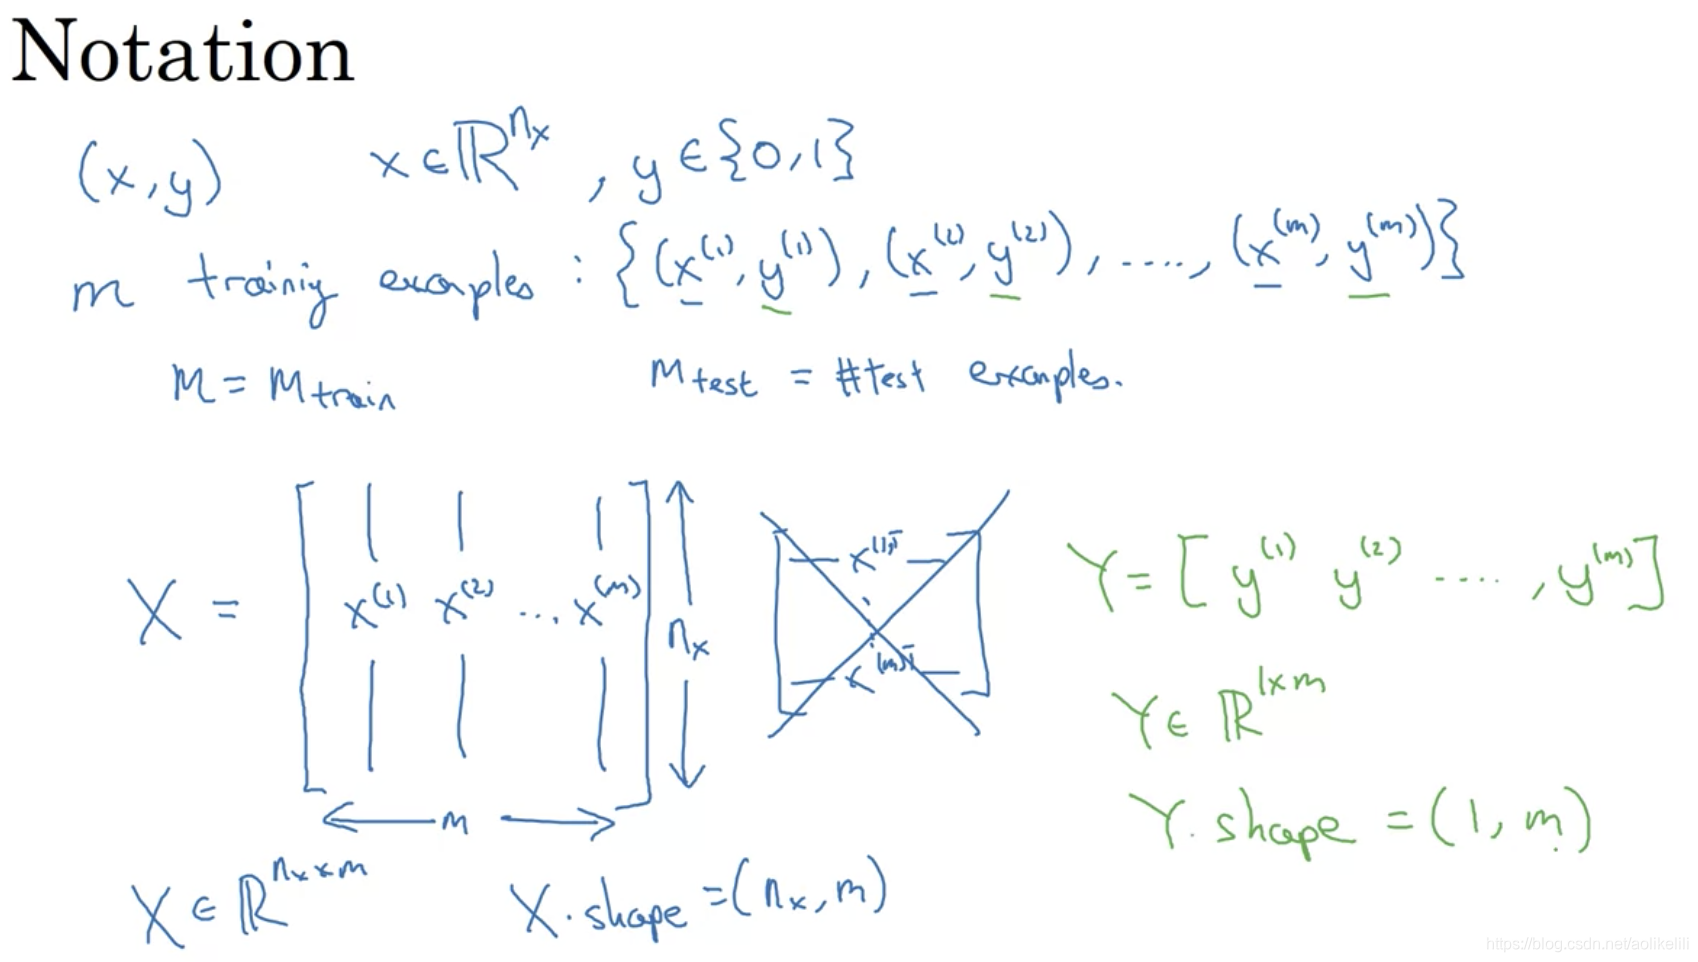 Notation
(x, y) x ∈ ℝ^{n_x}, y ∈ {0, 1}
m training examples : {(x^{(1)}, y^{(1)}), (x^{(2)}, y^{(2)}), ...., (x^{(m)}, y^{(m)})}
M = M_{train} M_{test} = #test examples.
X = [x^{(1)} x^{(2)} ... x^{(m)}] n_x
m
x^{(1)T}
x^{(m)T}
Y = [y^{(1)} y^{(2)} .... , y^{(m)}]
Y ∈ ℝ^{1×m}
Y.shape = (1, m)
X ∈ ℝ^{n_x×m} X.shape = (n_x, m)
https://blog.csdn.net/aolikelili